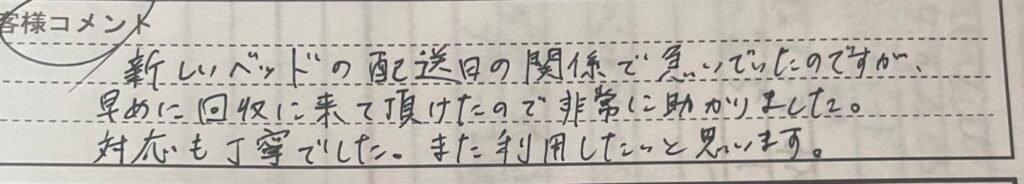 客様コメント
新しいベッドの配送日の関係で急いでいたのですが、
早めに回収に来て頂けたので非常に助かりました。
対応も丁寧でした。また利用したいと思います。